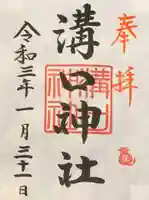 奉拝
溝口神社
令和三年一月三十一日